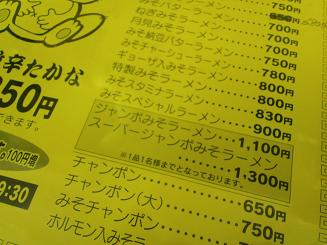 750円
ねぎみそラーメン
月見みそラーメン 700円
みそ納豆バターラーメン 700円
みそチャーシューメン 750円
ギョーザ入みそラーメン 780円
特製みそラーメン 800円
みそスタミナラーメン 800円
みそスペシャルラーメン 830円
900円
ジャンボみそラーメン 1,100円
スーパージャンボみそラーメン
※1品1名様までとなっております。 1,300円
チャンポン 650円
チャンポン(大) 750円
みそチャンポン 750円
ホルモン入みそラ
辛たかな
50円
できます。
100円増
9:30